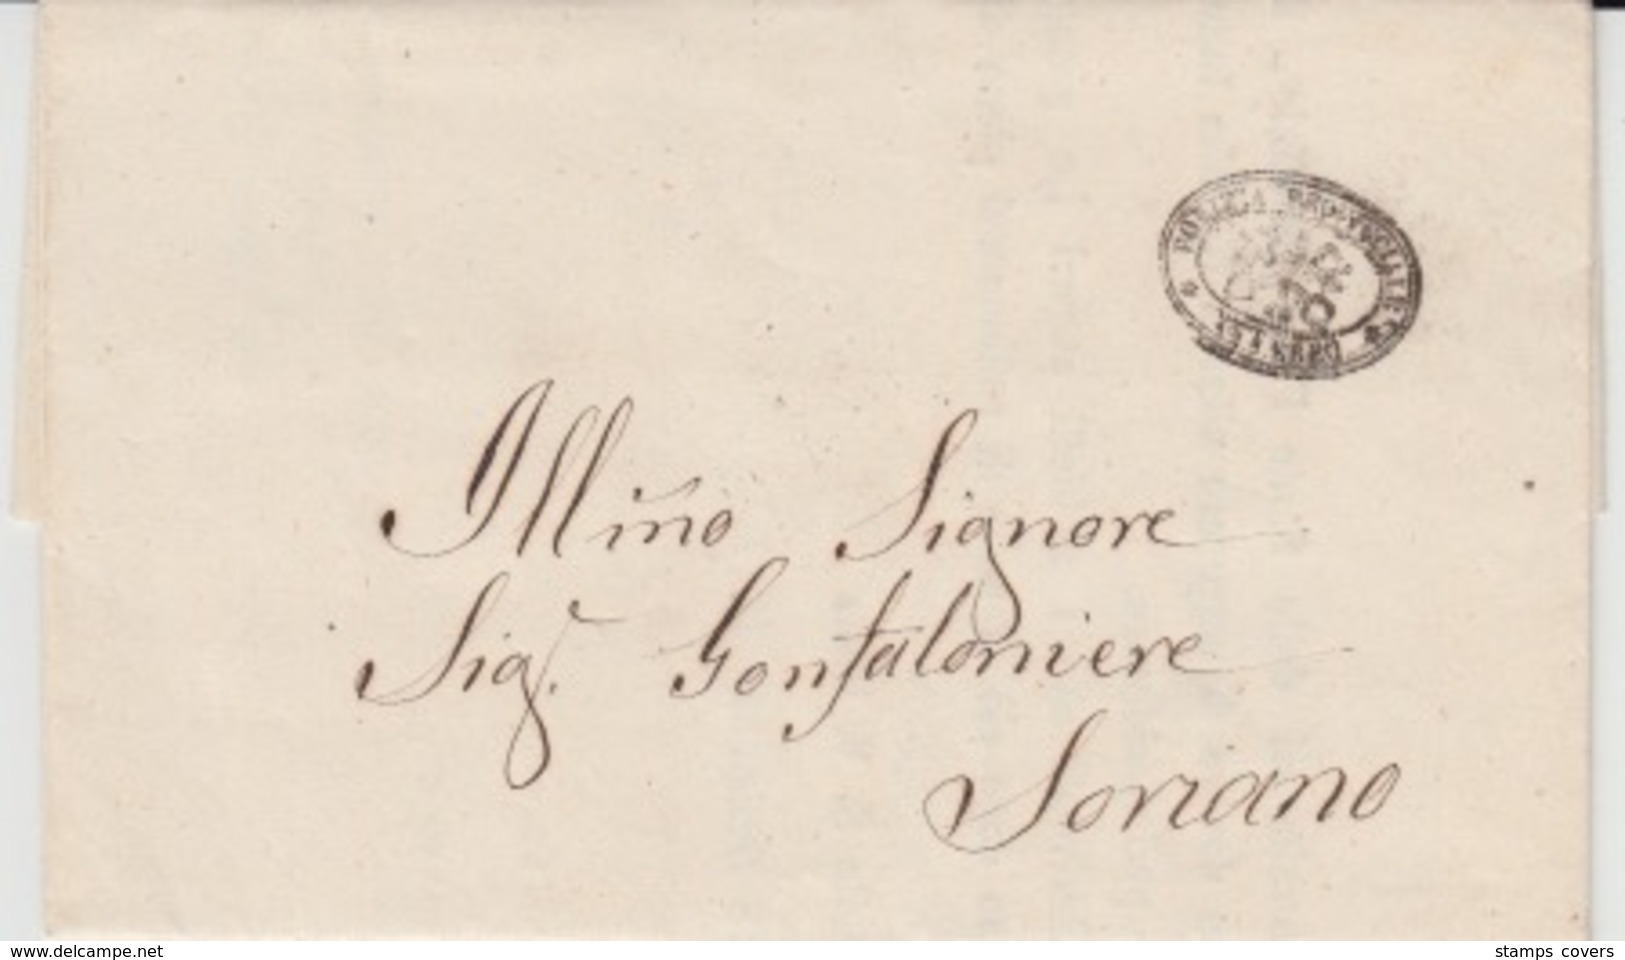 POLIZIA PROVINCIALE
VITERBO
Illm̃o Signore
Sigr. Gonfaloniere
Soriano
delcampe.net
stamps covers